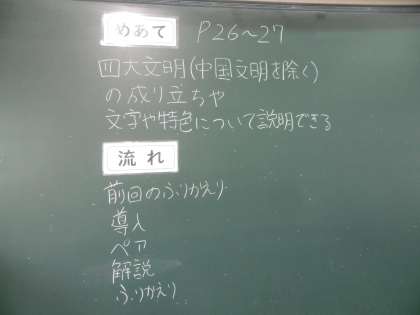 めあて P26～27
四大文明(中国文明を除く)
の成り立ちや
文字や特色について説明できる
流れ
前回のふりかえり
導入
ペア
解説
ふりかえり